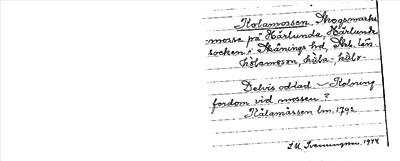 Kolamossen, Skogsmarks-
mosse på Härlunda, Härlunda
socken, Skånings hd, Skbg. län.
Delvis odlad - Kolning
fordom vid mossen?
Kålamåssen lm. 1792
Svenungsson. 1944